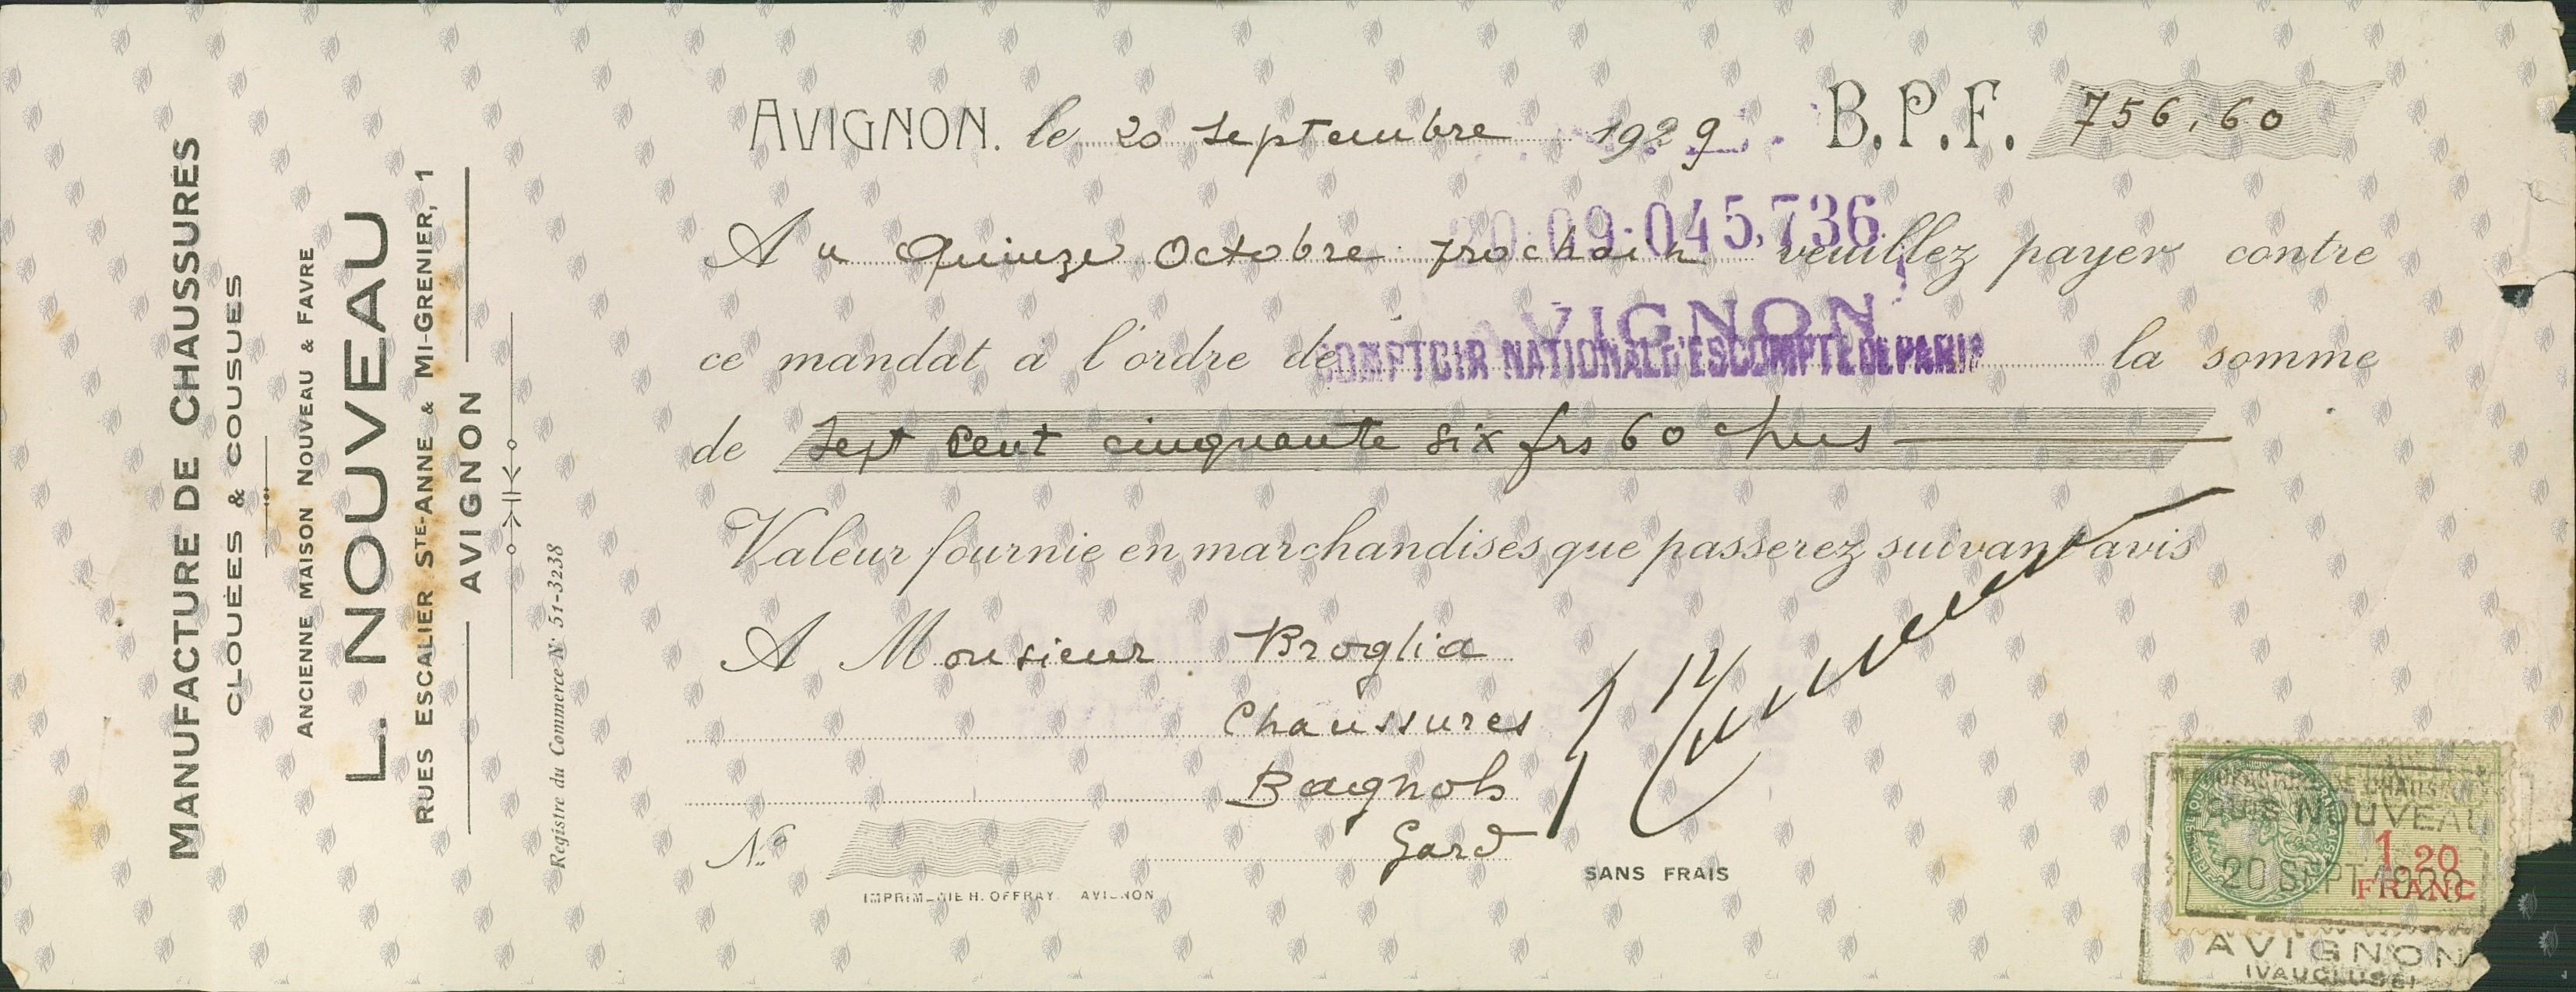 MANUFACTURE DE CHAUSSURES
CLOUÉES & COUSUES
ANCIENNE MAISON NOUVEAU & FAVRE
L. NOUVEAU
RUES ESCALIER STE-ANNE & MI-GRENIER, 1
AVIGNON
Registre du Commerce No 51-3238
AVIGNON. le 20 Septembre 1929 B.P.F. 756,60
20.09.045,736
Au Quinze Octobre prochain veuillez payer contre
AVIGNON
ce mandat à l'ordre de COMPTOIR NATIONAL D'ESCOMPTE DE PARIS la somme
de Sept Cent cinquante six frs 60 ctmes
Valeur fournie en marchandises que passerez suivant avis
A Monsieur Broglia
Chaussures
Bagnols
Gard
No
SANS FRAIS
IMPRIMERIE H. OFFRAY AVIGNON
MANUFACTURE DE CHAUSSURES
LOUIS NOUVEAU
1.20
FRANC
20 SEPT 1929
AVIGNON
(VAUCLUSE)